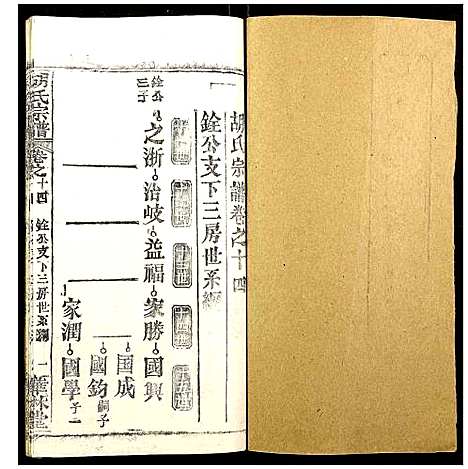 胡氏宗譜卷之十四
銓公支下三房世系
銓公三子
之浙 治岐 益福 家勝 國興
国成
國鈞 嗣子
家潤 國學 子一
胡氏宗譜 卷之十四 銓公支下三房世系 一